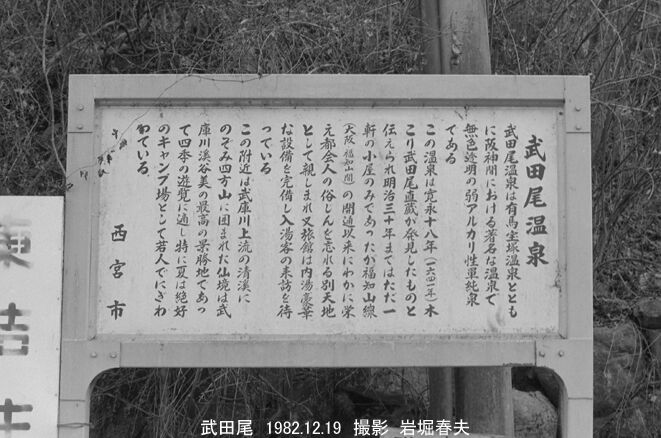 武田尾温泉
武田尾温泉は有馬宝塚温泉ととも
に阪神間における著名な温泉で
無色透明の弱アルカリ性単純泉
である
この温泉は寛永十八年(一六四一年)木
こり武田尾直蔵が発見したものと
伝えられ明治三十年まではただ一
軒の小屋のみであったが福知山線
(大阪 福知山間)の開通以来にわかに栄
え都会人の俗じんを忘れる別天地
として親しまれ又旅館は内湯豪華
な設備を完備し入湯客の来訪を待
っている
この附近は武庫川上流の清溪に
のぞみ四方山に囲まれた仙境は武
庫川溪谷美の最高の景勝地であっ
て四季の遊覧に適し特に夏は絶好
のキャンプ場として若人でにぎわ
っている。
西宮市
武田尾 1982.12.19 撮影 岩堀春夫